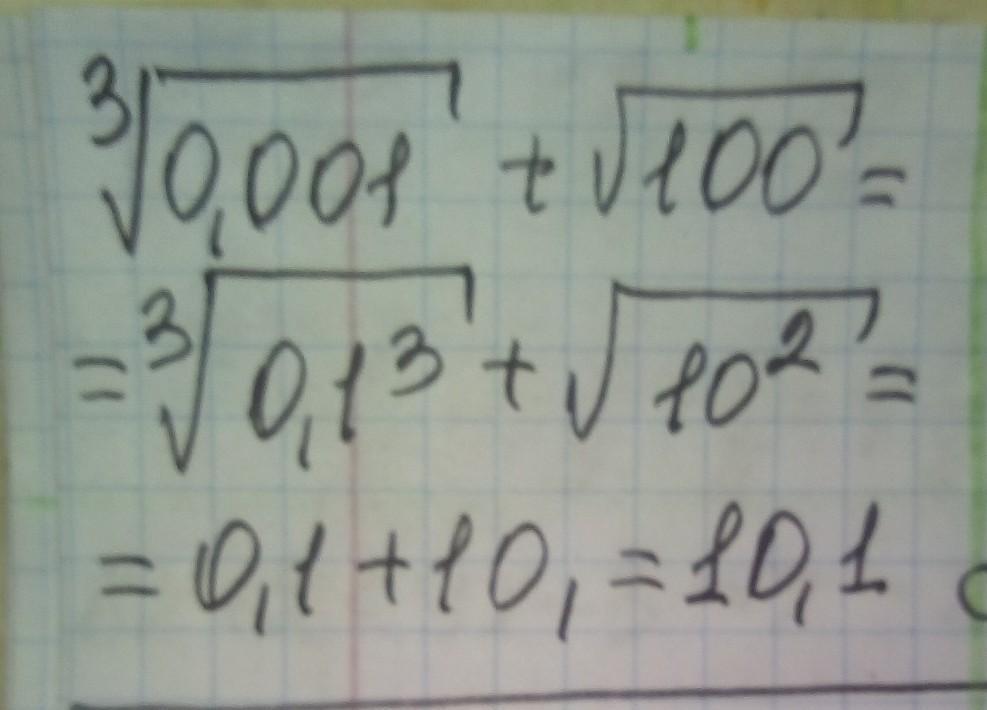 ∛0,001 + √100 =
= ∛0,1³ + √10² =
= 0,1 + 10, = 10,1